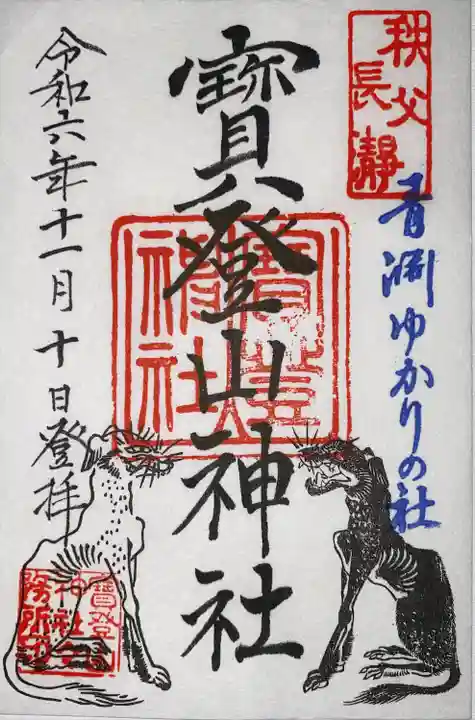 秩父
長瀞
青淵ゆかりの社
寳登山神社
寳登山
神社
令和六年十一月十日登拝
寳登山
神社
務所印